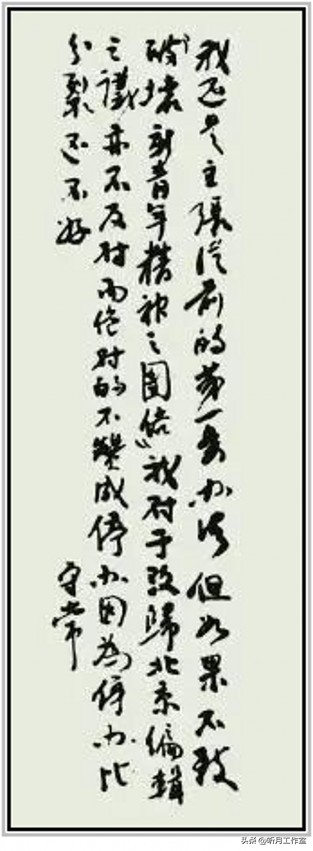 我还是主張從前的第一条办法但如果不致
“破壞新青年精神之團結”我对于改歸北京編輯
之議亦不反对而絕对的不贊成停办因為停办比
分裂还不好
守常
头条 @昕月工作室